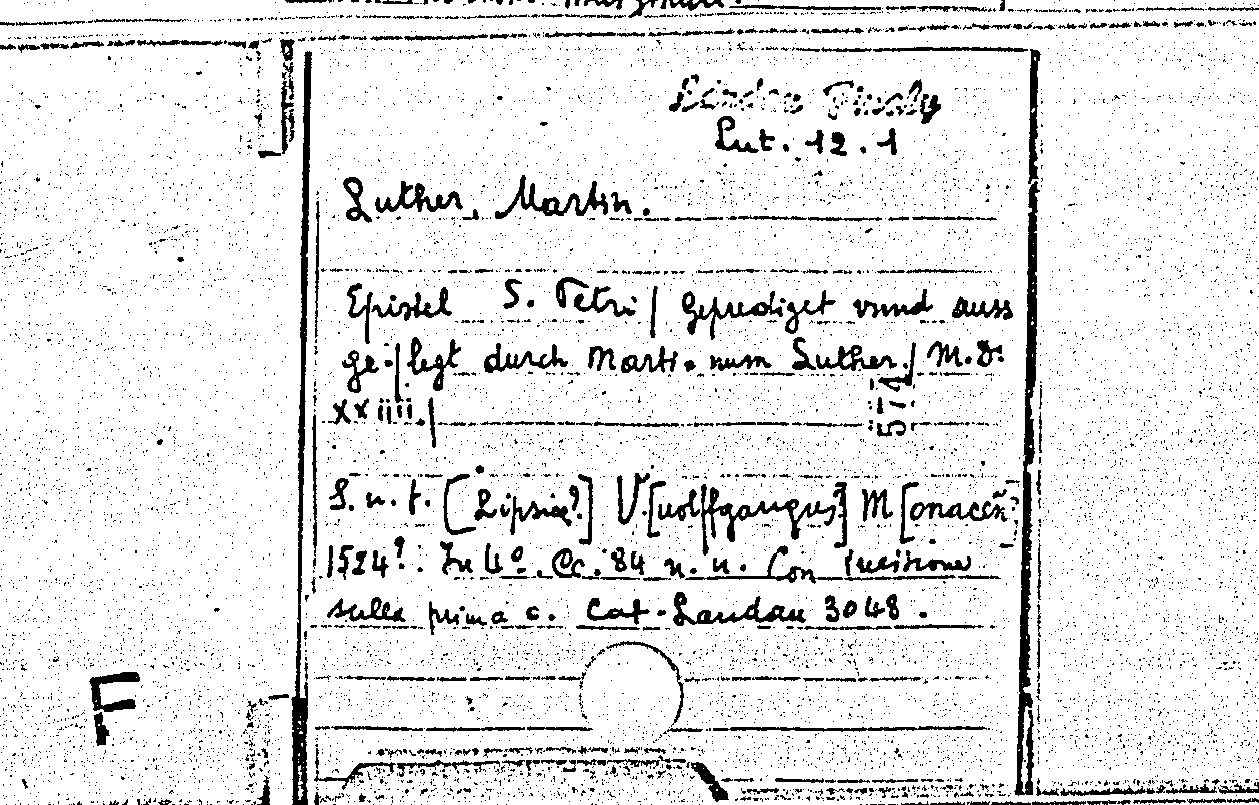 Landau Finaly
Lut. 12. 1
Luther, Martin.
Epistel S. Petri | Geprediget vnnd auss
ge-| legt durch Marti- num Luther. | M.D.
xxiiii. |
574
S. n. t. [Lipsiae?] V[uolffgangus?] M[onacen̄?]
1524?. In 4º. Cc. 84 n. n. Con incisione
sulla prima c. Cat. Landau 3048.
F